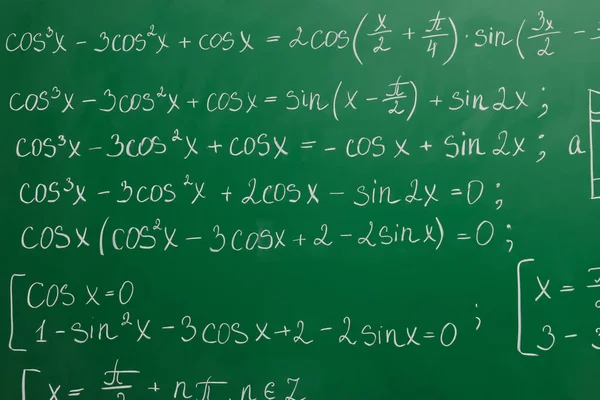 cos³x - 3cos²x + cosx = 2cos(x/2 + π/4) · sin(3x/2 -
cos³x - 3cos²x + cosx = sin(x - π/2) + sin2x ;
cos³x - 3cos²x + cosx = - cosx + sin2x ; a
cos³x - 3cos²x + 2cosx - sin2x = 0 ;
cosx(cos²x - 3cosx + 2 - 2sinx) = 0 ;
[ cosx = 0
1 - sin²x - 3cosx + 2 - 2sinx = 0 ;
[ x =
3 - 3
[ x = π/2 + nπ, n ∈ Z